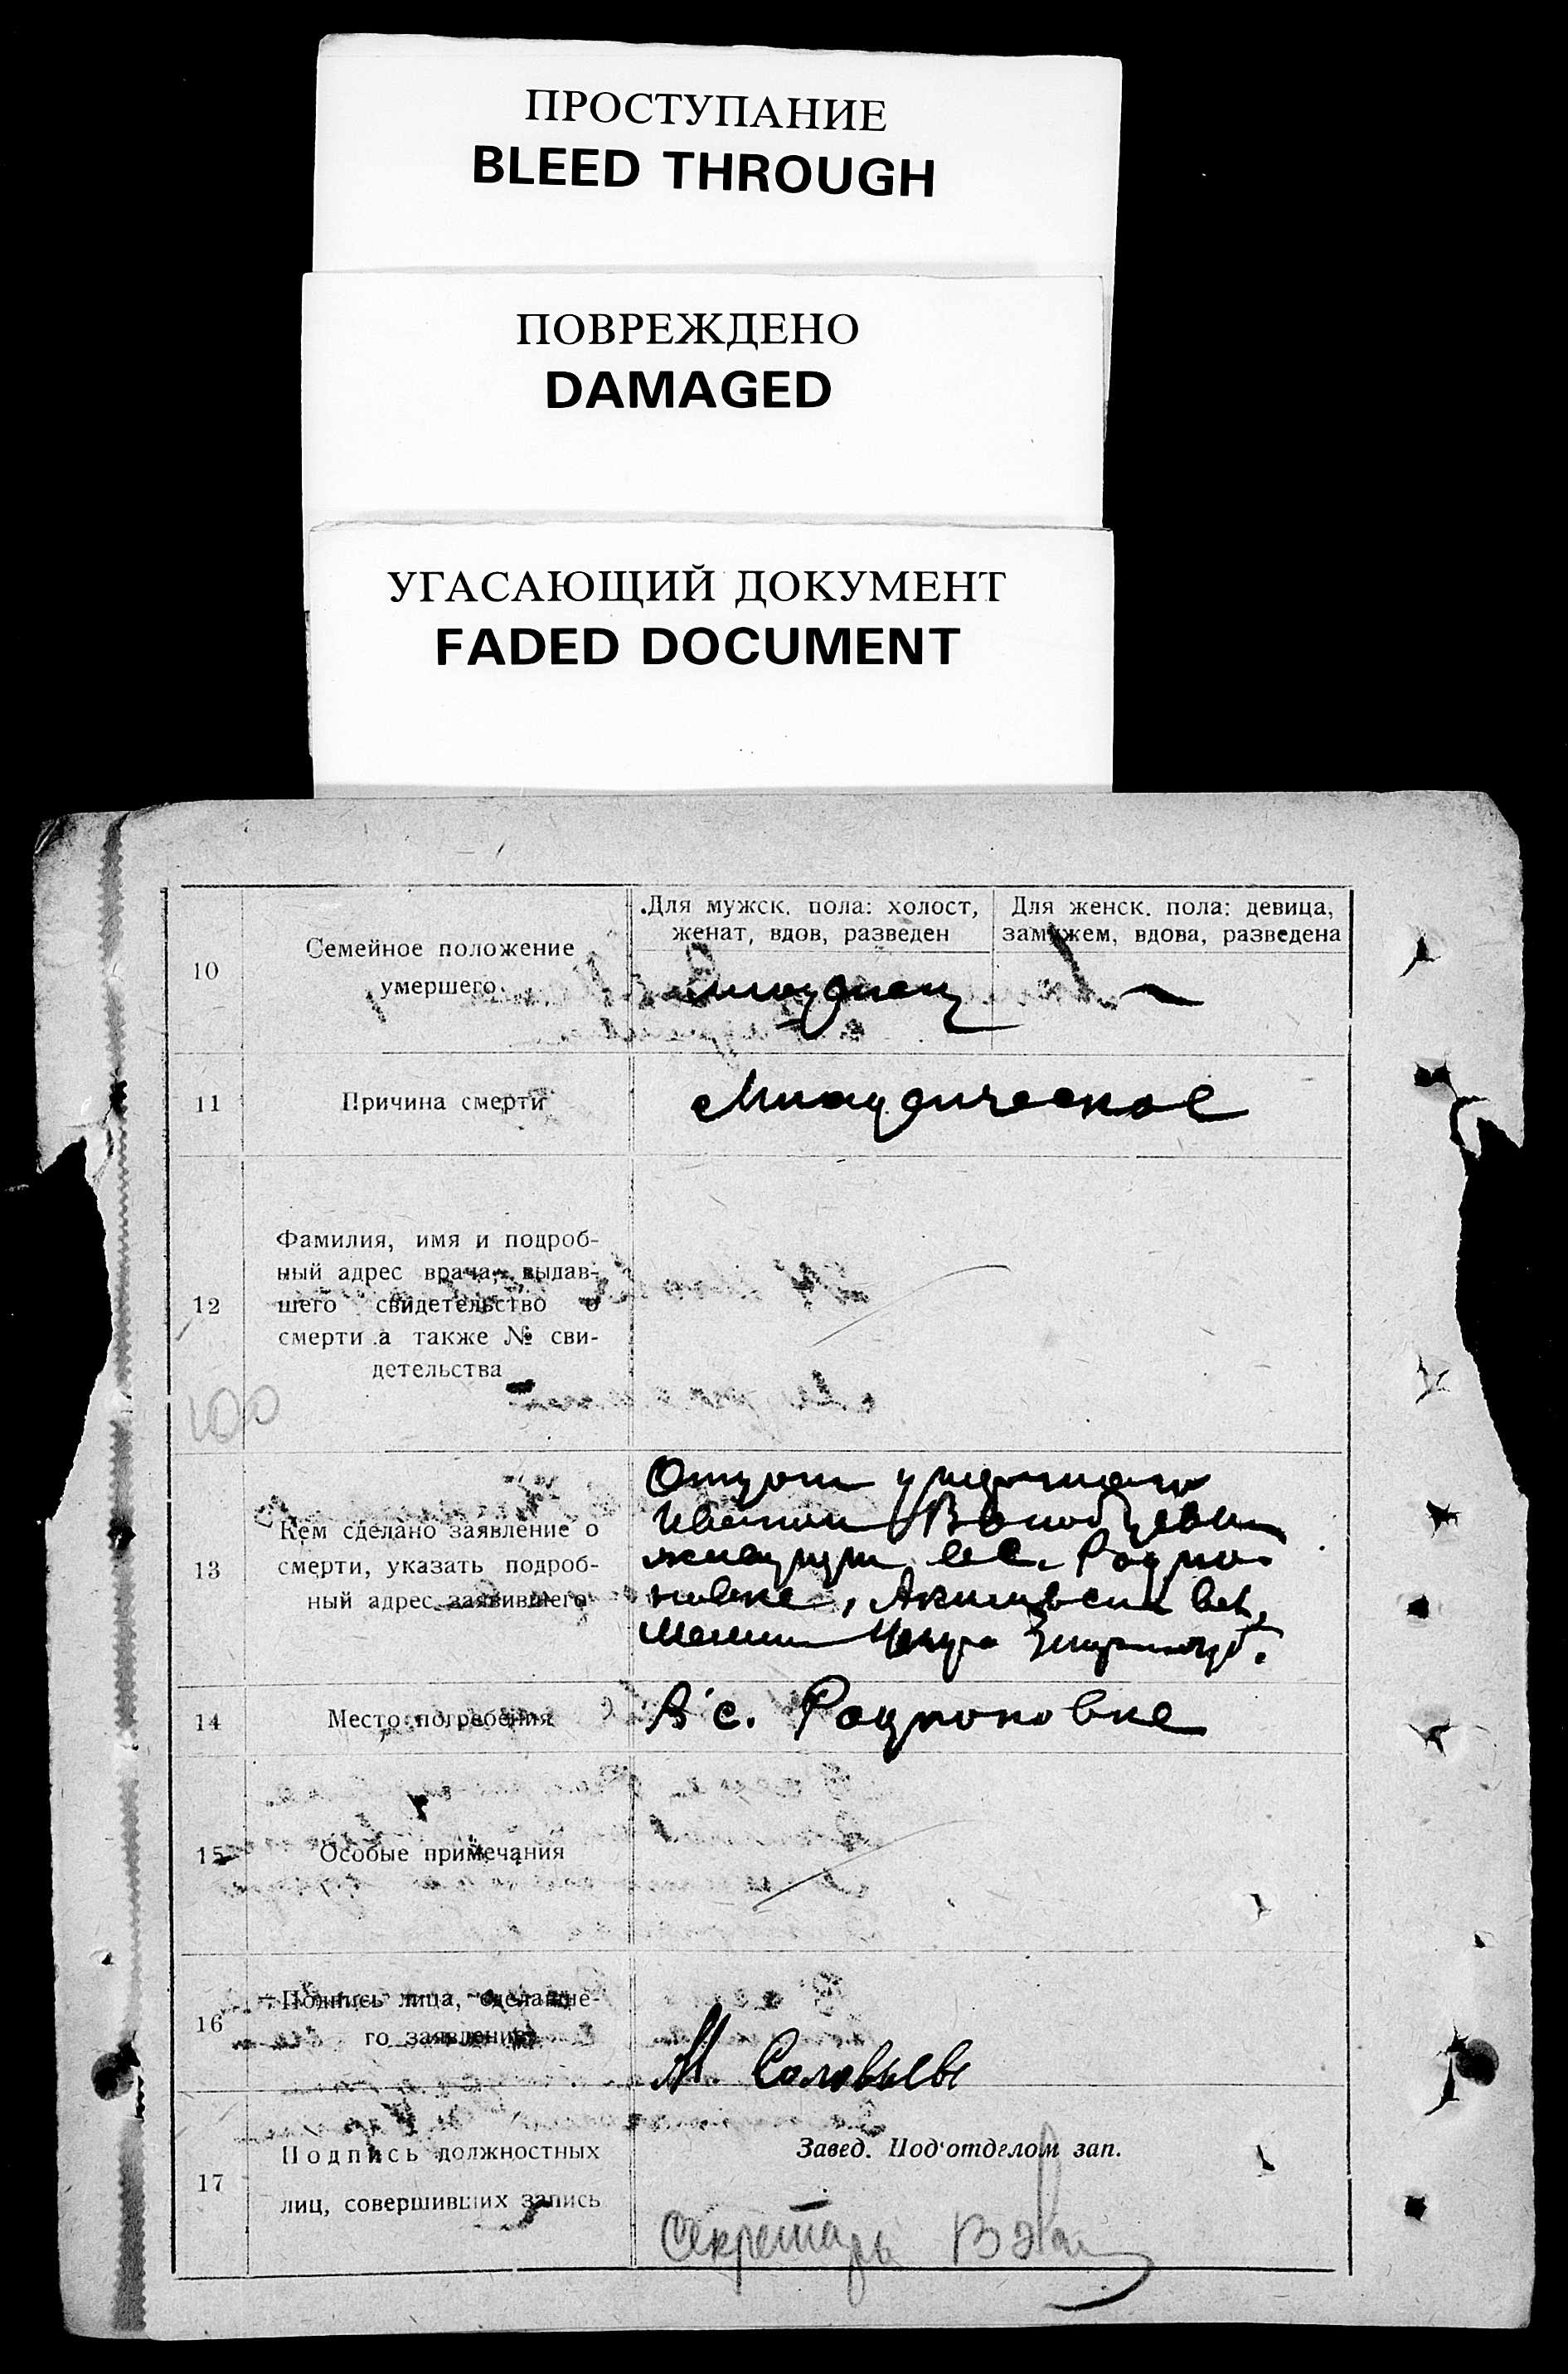 ПРОСТУПАНИЕ
BLEED THROUGH
ПОВРЕЖДЕНО
DAMAGED
УГАСАЮЩИЙ ДОКУМЕНТ
FADED DOCUMENT
10
Семейное положение
умершего
Для мужск. пола: холост,
женат, вдов, разведен
Для женск. пола: девица,
замужем, вдова, разведена
младенец
11
Причина смерти
Младическое
12
Фамилия, имя и подроб-
ный адрес врача, выдав-
шего свидетельство о
смерти а также № сви-
детельства
100
13
Кем сделано заявление о
смерти, указать подроб-
ный адрес заявившего
Отцом
Иваном
в с. Родио-
новке, Акимовской вол,
14
Место погребения
В с. Родионовке
15
Особые примечания
16
Подпись лица, сделавше-
го заявление
М. Соловьев
17
Подпись должностных
лиц, совершивших запись
Завед. Под'отделом зап.
Секретарь